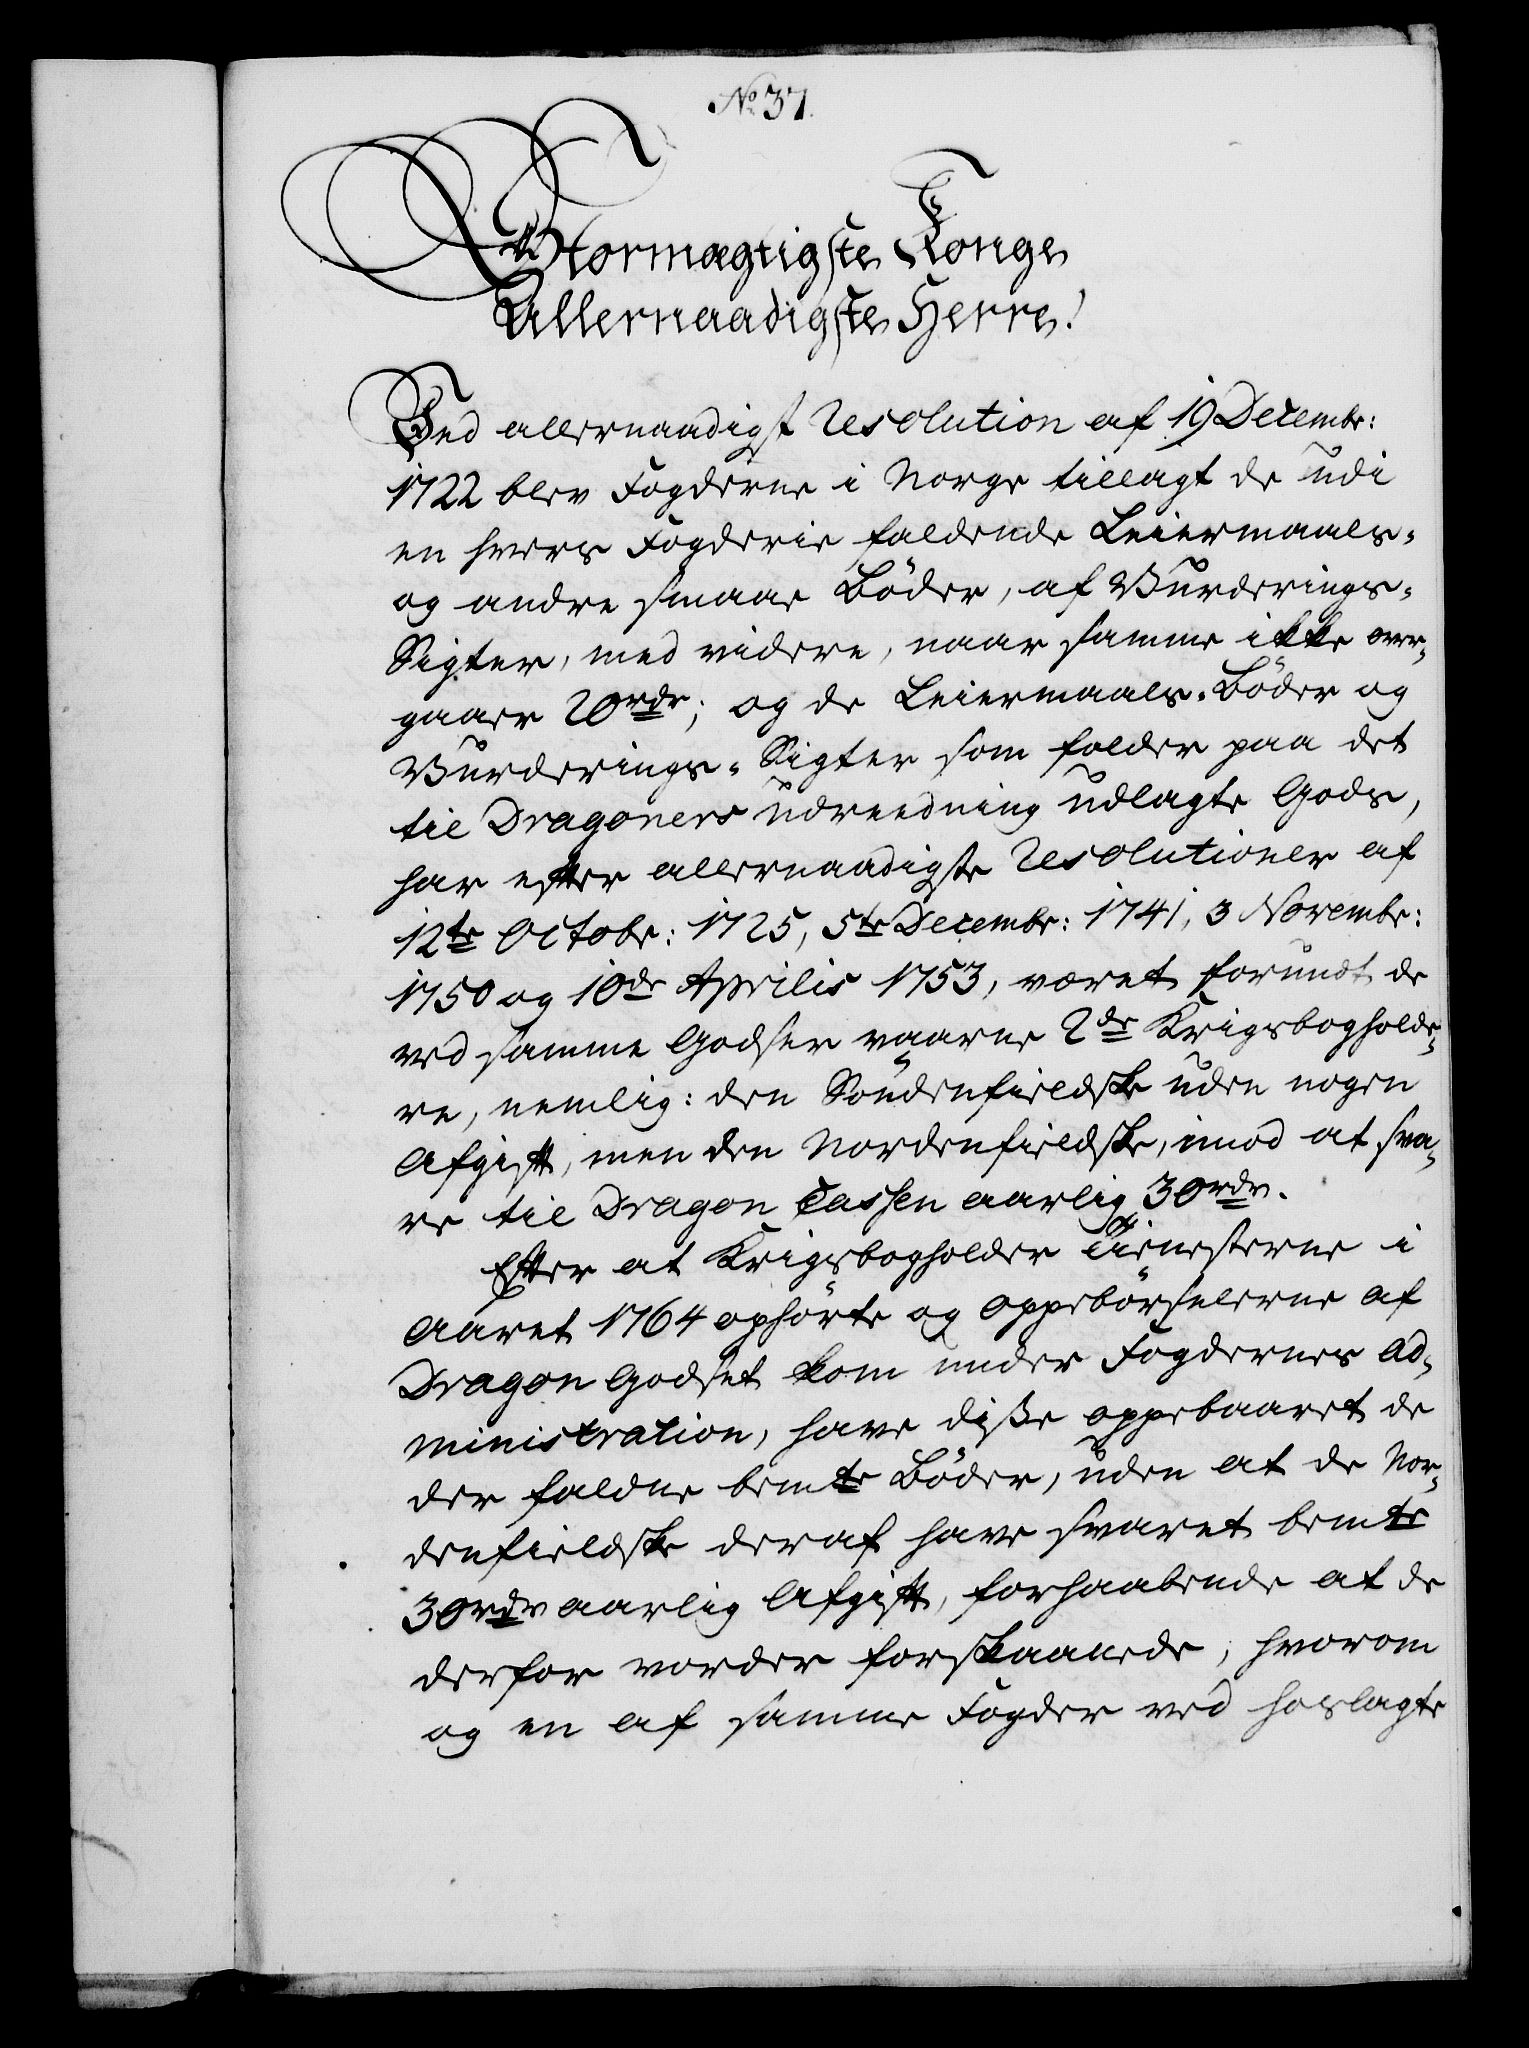 No 37.
Stormægtigste Konge
Allernaadigste Herre!
Ved allernaadigst Resolution af 19 Decembr:
1722 blev Fogderne i Norge tillagt de udi
en hvers Fogderie faldende Leiermaals-
og andre smaae Bøder, af Vurderings-
Sigter, med videre, naar samme ikke over-
gaaer 20rdr; og de Leiermaals-Bøder og
Vurderings-Sigter som falder paa det
til Dragoners udreedning udlagte Gods,
har efter allernaadigste Resolutioner af
12te Octobr: 1725, 5te Decembr: 1741, 3 Novembr:
1750 og 10de Aprilis 1753, været forundt de
ved samme Godser værne 2de Krigsbogholde-
re, nemlig: den Søndenfieldske uden nogen
Afgift, men den Nordenfieldske, imod at sva-
re til Dragon Cassen aarlig 30rdr.
Efter at Krigsbogholder Tienesterne i
Aaret 1764 ophørte og Oppebørselerne af
Dragon Godset kom under Fogdernes Ad-
ministration, have diße oppebaaret de
der faldne bemte Bøder, uden at de Nor-
denfieldske deraf have svaret bemte
30rdr aarlig Afgift, forhaabende at de
derfor vorder forskaanede, hvorom
og en af samme Fogder ved hoslagte